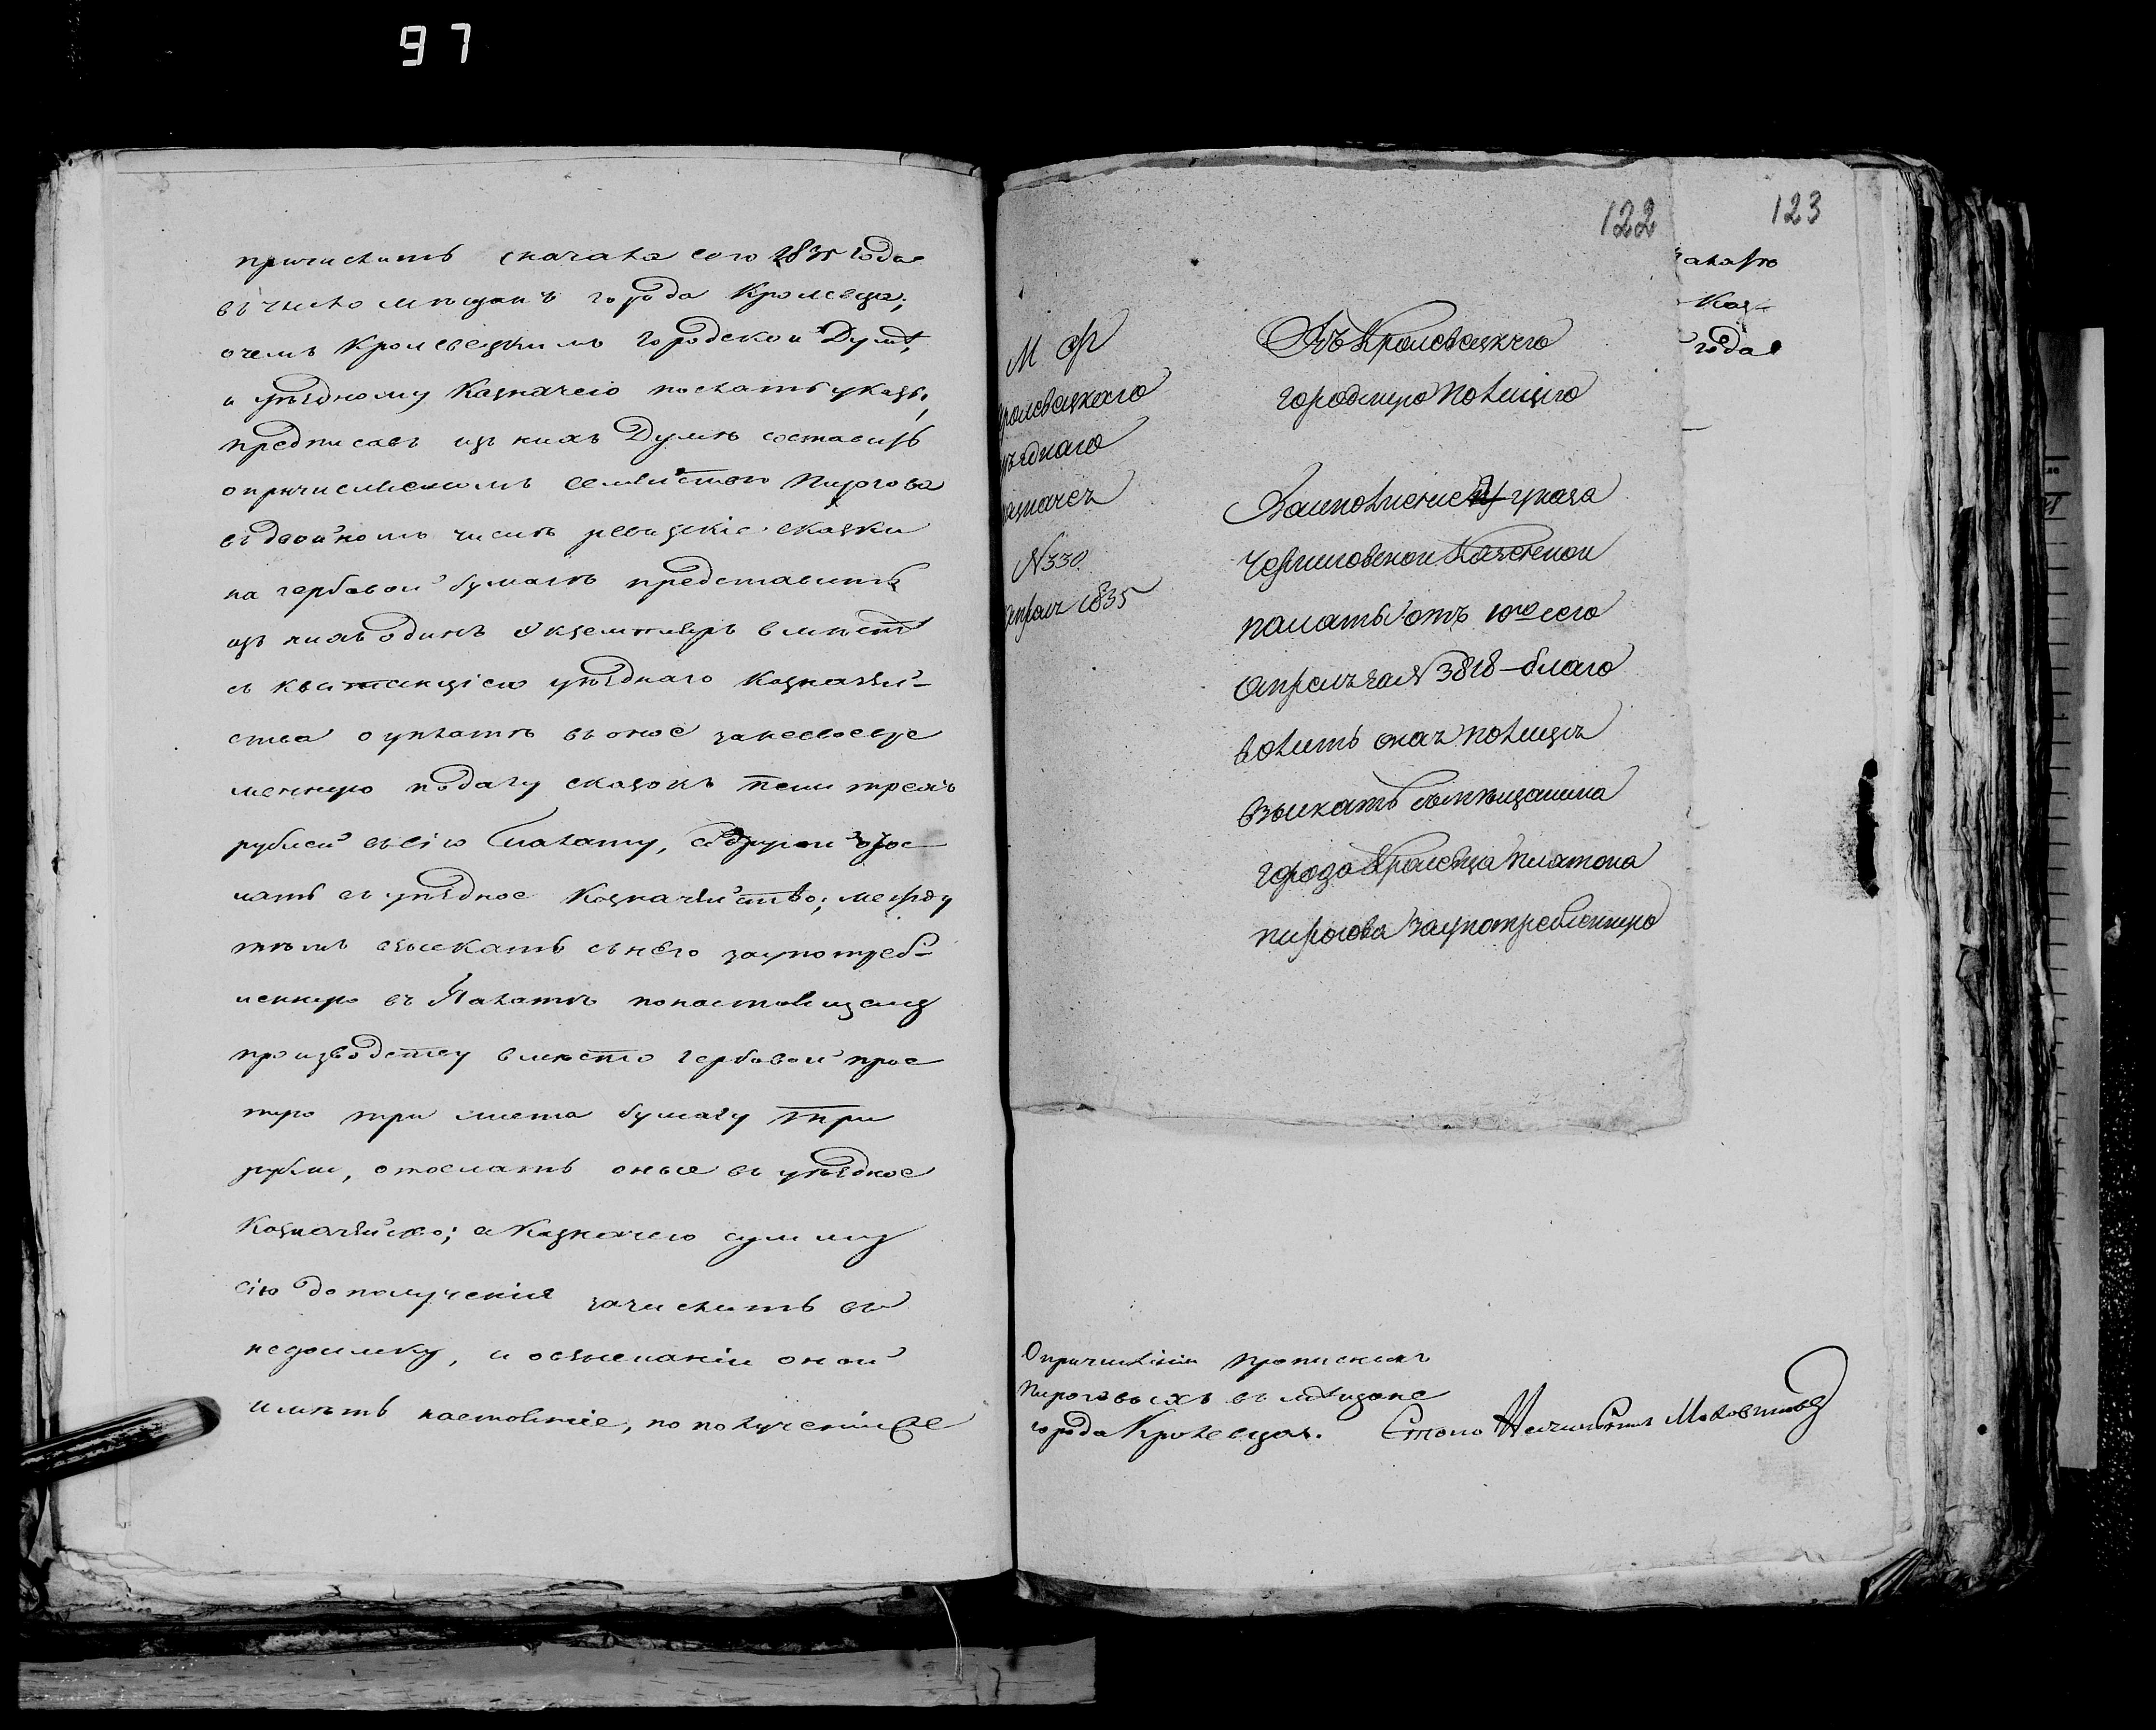 97
причислить сначала сего 1835 года
въ число мещанъ города Кролевца;
о чемъ Кролевецкимъ Городской Думѣ,
и уѣздному Казначею послать указы,
предписавъ изъ нихъ Думѣ составить
о причисленномъ семействѣ Пирогова
въ двойномъ числѣ ревизскіе сказки
на гербовой бумагѣ представить
изъ нихъ одинъ экземпляръ вместѣ
съ квитанціею уѣзднаго Казначей-
ства о уплатѣ въ оное за несвоевре
менную подачу сказокъ пени трехъ
рублей въ сію Палату, а другой отос
лать въ уѣздное Казначейство; между
тѣмъ взыскать съ него за употреб-
ленную въ Палатѣ по настоящему
производству вмѣсто гербовой прос
тую три листа бумагу три
рубли, отослать оные въ уѣздное
Казначейство; а Казначею сумму
сію до полученія зачислить въ
недоимку, и о взысканіи оной
имѣть настояніе, по полученіи же
122
123
М Ф
Кролевецкаго
уѣзднаго
казначея
N 330
апреля 1835
Въ Кролевецкую
городскую полицію
Во исполненіе указа
Черниговской Казенной
палаты отъ 10го сего
апреля за N 3818 - благо
волитъ оная полиція
взыскать съ мещанина
города Кролевца Платона
пирогова за употребленную
Каз-
года
О причисленіи прописныхъ
Пироговыхъ въ мѣщане
города Кролевца.
Столоначальникъ